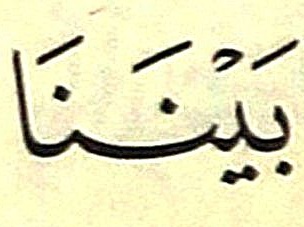 بَيْنَنَا